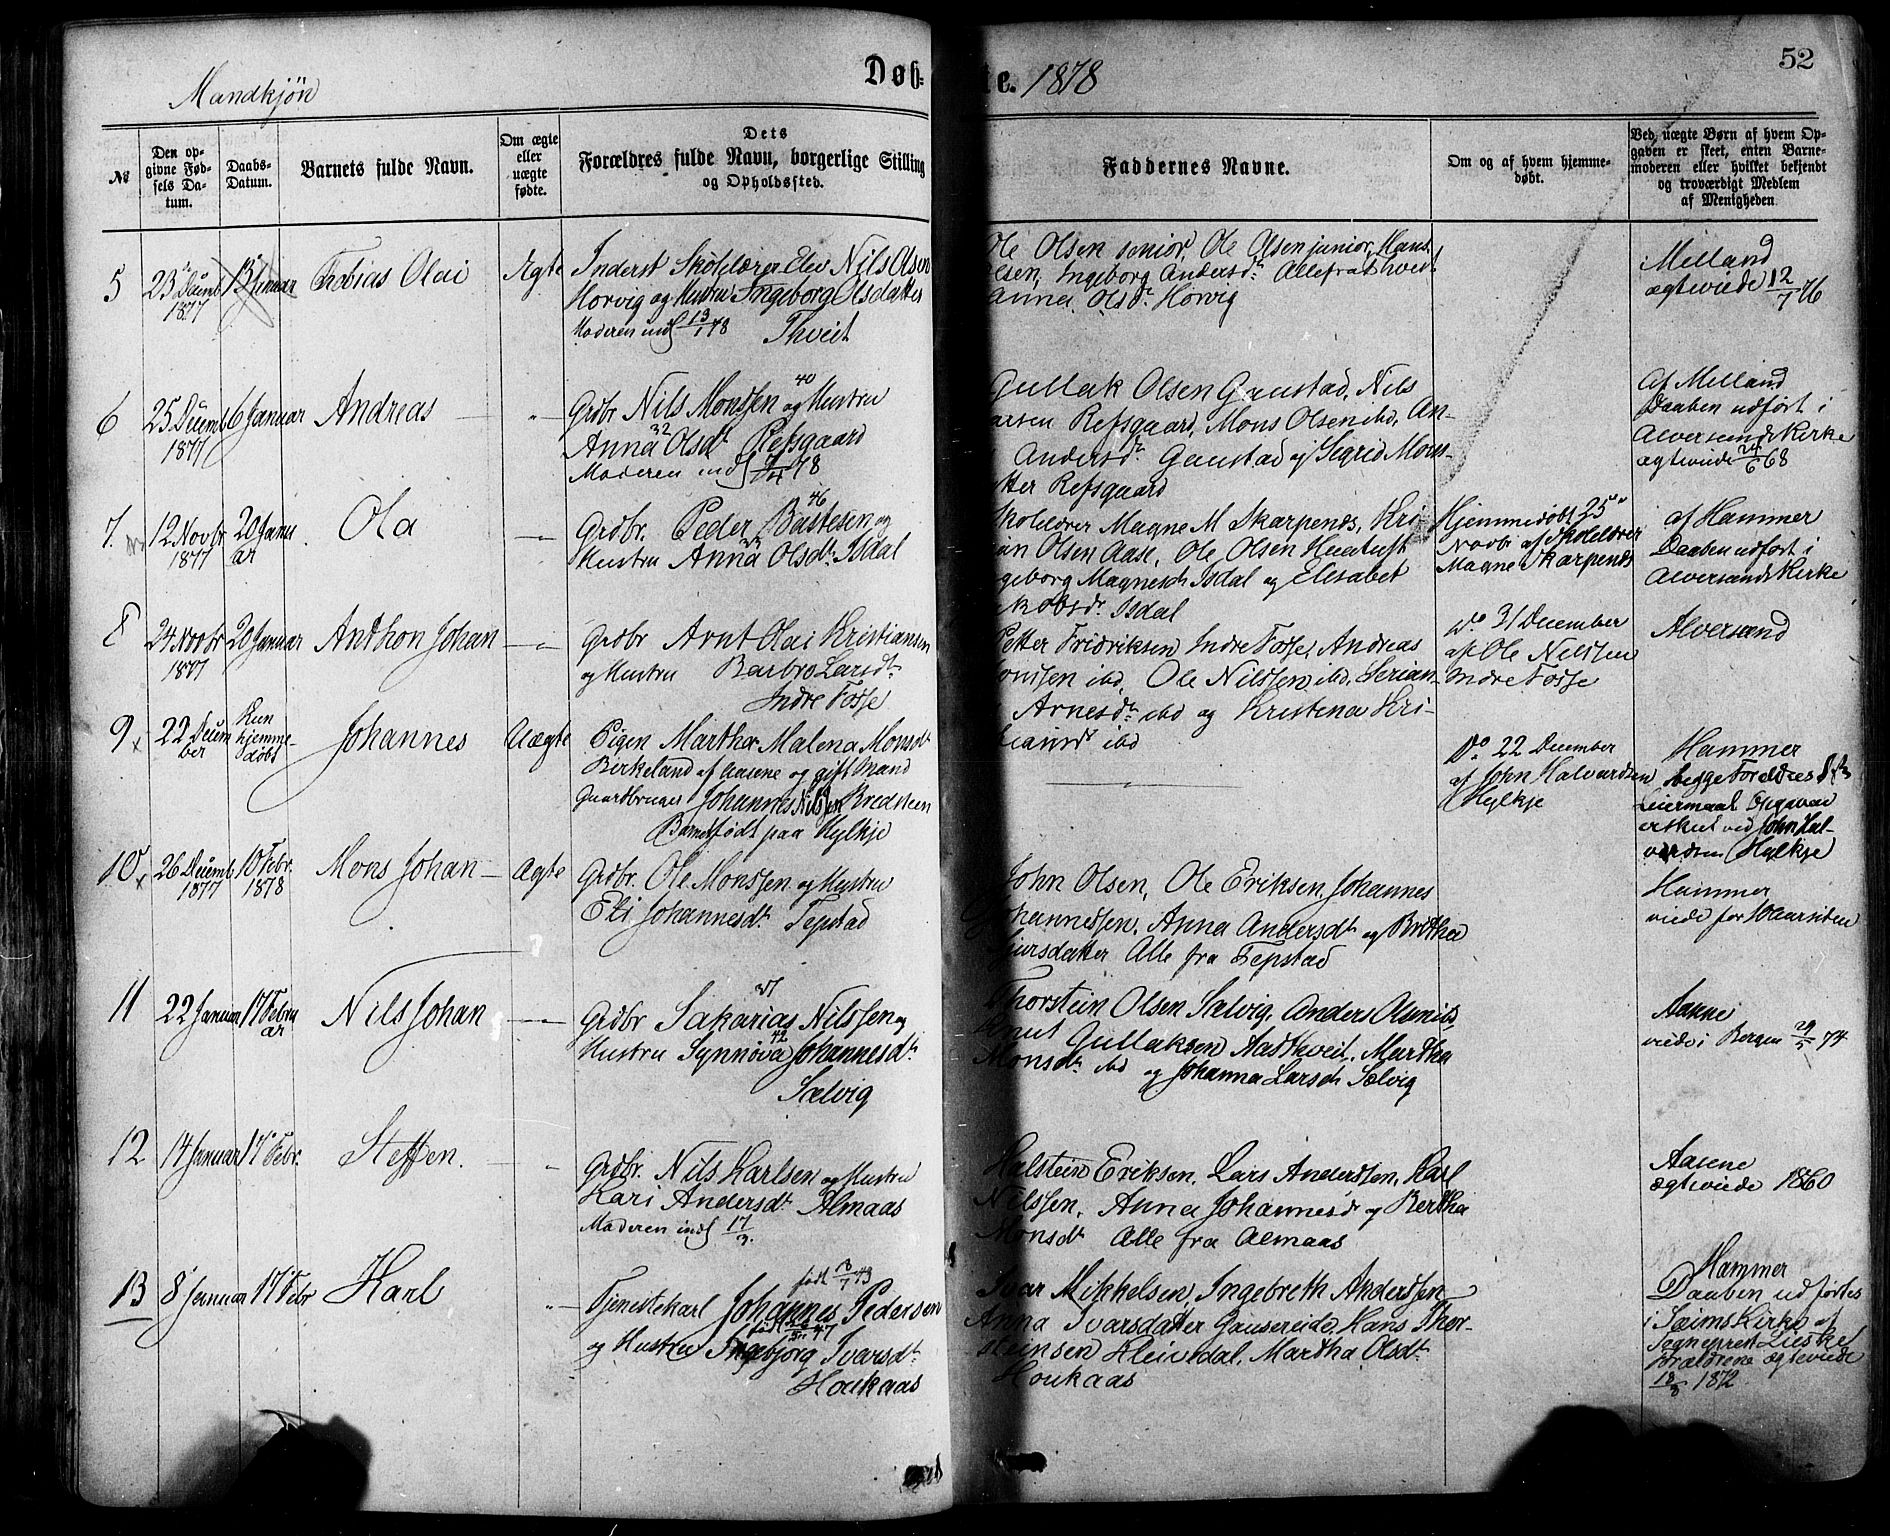 Mandkjön
Døb-
te. 1878
52
No
Den op-
givne Fød-
sels Da-
tum.
Daabs-
Datum.
Barnets fulde Navn.
Om ægte
eller
uægte
fødte.
Dets
Forældres fulde Navn, borgerlige Stilling
og Opholdssted.
Faddernes Navne.
Om og af hvem hjemme-
døbt.
Ved uægte Børn af hvem Op-
gaven er skeet, enten Barne-
moderen eller hvilket bekjendt
og troværdigt Medlem
af Menigheden
5
23 Decemb
1877
13 Januar
Tobias Olai
Ægte
Inderst Skolelærer Elev Nils Olsen
Horvig og Hustru Ingeborg Olsdatter
Moderen indl 13/1 78 Thveit
Ole Olsen senior, Ole Olsen junior, Hans
Olsen, Ingeborg Andersdr Alle fra Thveit
Anna Olsdr Horvig
Melland
ægteviede 12/7 76
6
25 Decemb
1877
6 Januar
Andreas
-"-
Grdbr. Nils Monssen 40 og Hustru
Anna 32 Olsdt Refsgaard
Moderen indl 78
Gullak Olsen Gaustad, Nils
Larsen Refsgaard, Mons Olsen ibd, An-
Andersdr Gaustad og Segrid Mons-
tter Refsgaard
Af Melland
Daaben udført i
Alversunds Kirke
ægteviede 24/6 68
7.
12 Novbr
1877
20 Janu
ar
Ola
-"-
Grdbr. Peder Bastesen 46 og
Hustru Anna 33 Olsdt. Isdal
Skolelærer Magne M Skarpenæs, Kri
Olsen Aase, Ole Olsen
Ingeborg Magnesdr Isdal og Elisabet
Jakobsdr. Isdal
Hjemmedøbt 25de
Novbr af Skolelærer
Magne Skarpenæs
af Hammer
Daaben udført i
Alversunds Kirke
8
24 Novbr
1877
20 Januar
Andhon Johan
-"-
Grdbr Arnt Olai Kristiansen
og Hustru Barbro Larsdt.
Indre Fosse
Petter Fridriksen Indre Fosse, Andreas
ibd, Ole Nilssen ibd, Serian-
Arnesdt. ibd og Kristena Kri-
ibd
Do 31 December
af Ole Nilssen
Indre Fosse
Alversund
9 x
22 Decem
ber
Kun
hjemme-
døbt
Johannes
Uægte
Pigen Martha Malena Monsdt
Birkeland af Aasene og gift Mand
Gaardbruger Johannes Nilssen Bredsteen
Barnet født paa Hylkje
Do. 22 December
af John Halvardsen
Hylkje
Hammer
begge Forældres 1ste
Leiermaal Opgaven
er skeet ved John Hal-
vardsen Hylkje
10 x
26 Decemb
1877
10 Febr.
1878
Mons Johan
Ægte
Grdbr. Ole Monssen og Hustru
Eli Johannesdt. Tepstad
John Olsen, Ole Eriksen, Johannes
Johannessen, Anna Andersdt og Brithe
datter Alle fra Tepstad
Hammer
viede for 10 Aar siden
11
22 Januar
17 Febru
ar
Nils Johan
-"-
Grdbr Sakarias 37 Nilssen og
Hustru Synnøva 42 Johannesdt.
Sælvig
Thorstein Olsen Sælvig, Anders
Knut Gullaksen Aadthveit, Martha
Monsdt. ibd og Johanna Larsdr Sælvig
Aasene
viede i Bergen 74
12
14 Januar
17 Febr.
Steffen.
-"-
Grdbr. Nils Karlsen og Hustru
Kari Andersdt. Almaas
Moderen indl 17/3.
Halstein Eriksen, Lars Anderssen, Karl
Nilssen, Anna Johannesdr og Bertha
Monsdt Alle fra Almaas
Aasene
ægteviede 1860
13
8 Januar
17 Febr
Karl
-"-
født 3/7 43
Tjenestekarl Johannes Pedersen
født 47
og Hustru Ingebjorg Ivarsdt.
Houkaas
Ivar Mikkelsen, Ingebreth Anderssen
Anna Ivarsdatter Gausereide, Hans Thor-
steinsen Kleivdal, Martha Olsdt.
Houkaas
Hammer
Daaben udførtes
i Seims Kirke af
Sognepræst
Forældrene ægteviede
18/8 1872